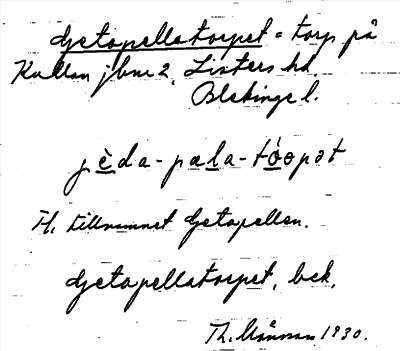 Getapellatorpet = torp på
Kullan jbnr 2, Listers hd.
Blekinge l.
jèda-pæla-tóopət
Th. tillnamnet Getapellen.
Getapellatorpet, bek.
Th. Månsson 1930.